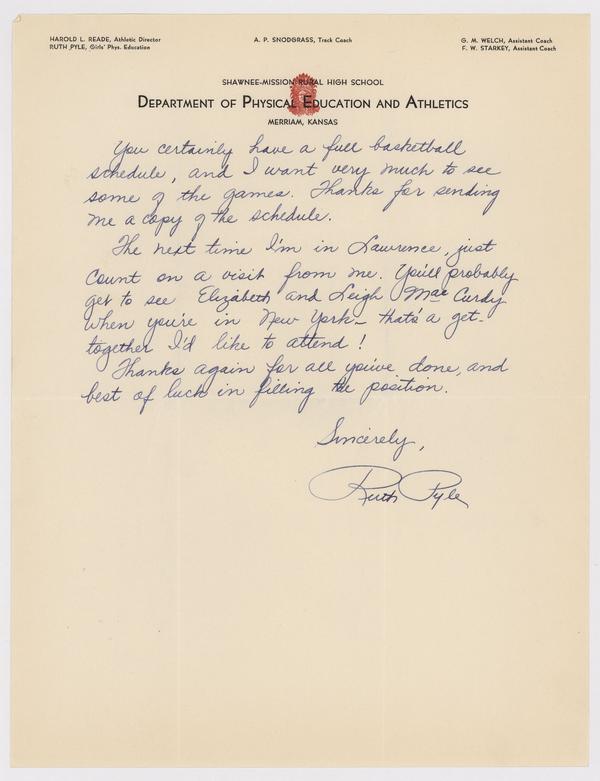 HAROLD L. READE, Athletic Director
RUTH PYLE, Girls' Phys. Education
A. P. SNODGRASS, Track Coach
G. M. WELCH, Assistant Coach
F. W. STARKEY, Assistant Coach
SHAWNEE-MISSION RURAL HIGH SCHOOL
DEPARTMENT OF PHYSICAL EDUCATION AND ATHLETICS
MERRIAM, KANSAS
You certainly have a full basketball
schedule, and I want very much to see
some of the games. Thanks for sending
me a copy of the schedule.
The next time I'm in Lawrence, just
count on a visit from me. You'll probably
get to see Elizabeth and Leigh MacCurdy
when you're in New York — that's a get-
together I'd like to attend!
Thanks again for all you've done, and
best of luck in filling the position.
Sincerely,
Ruth Pyle